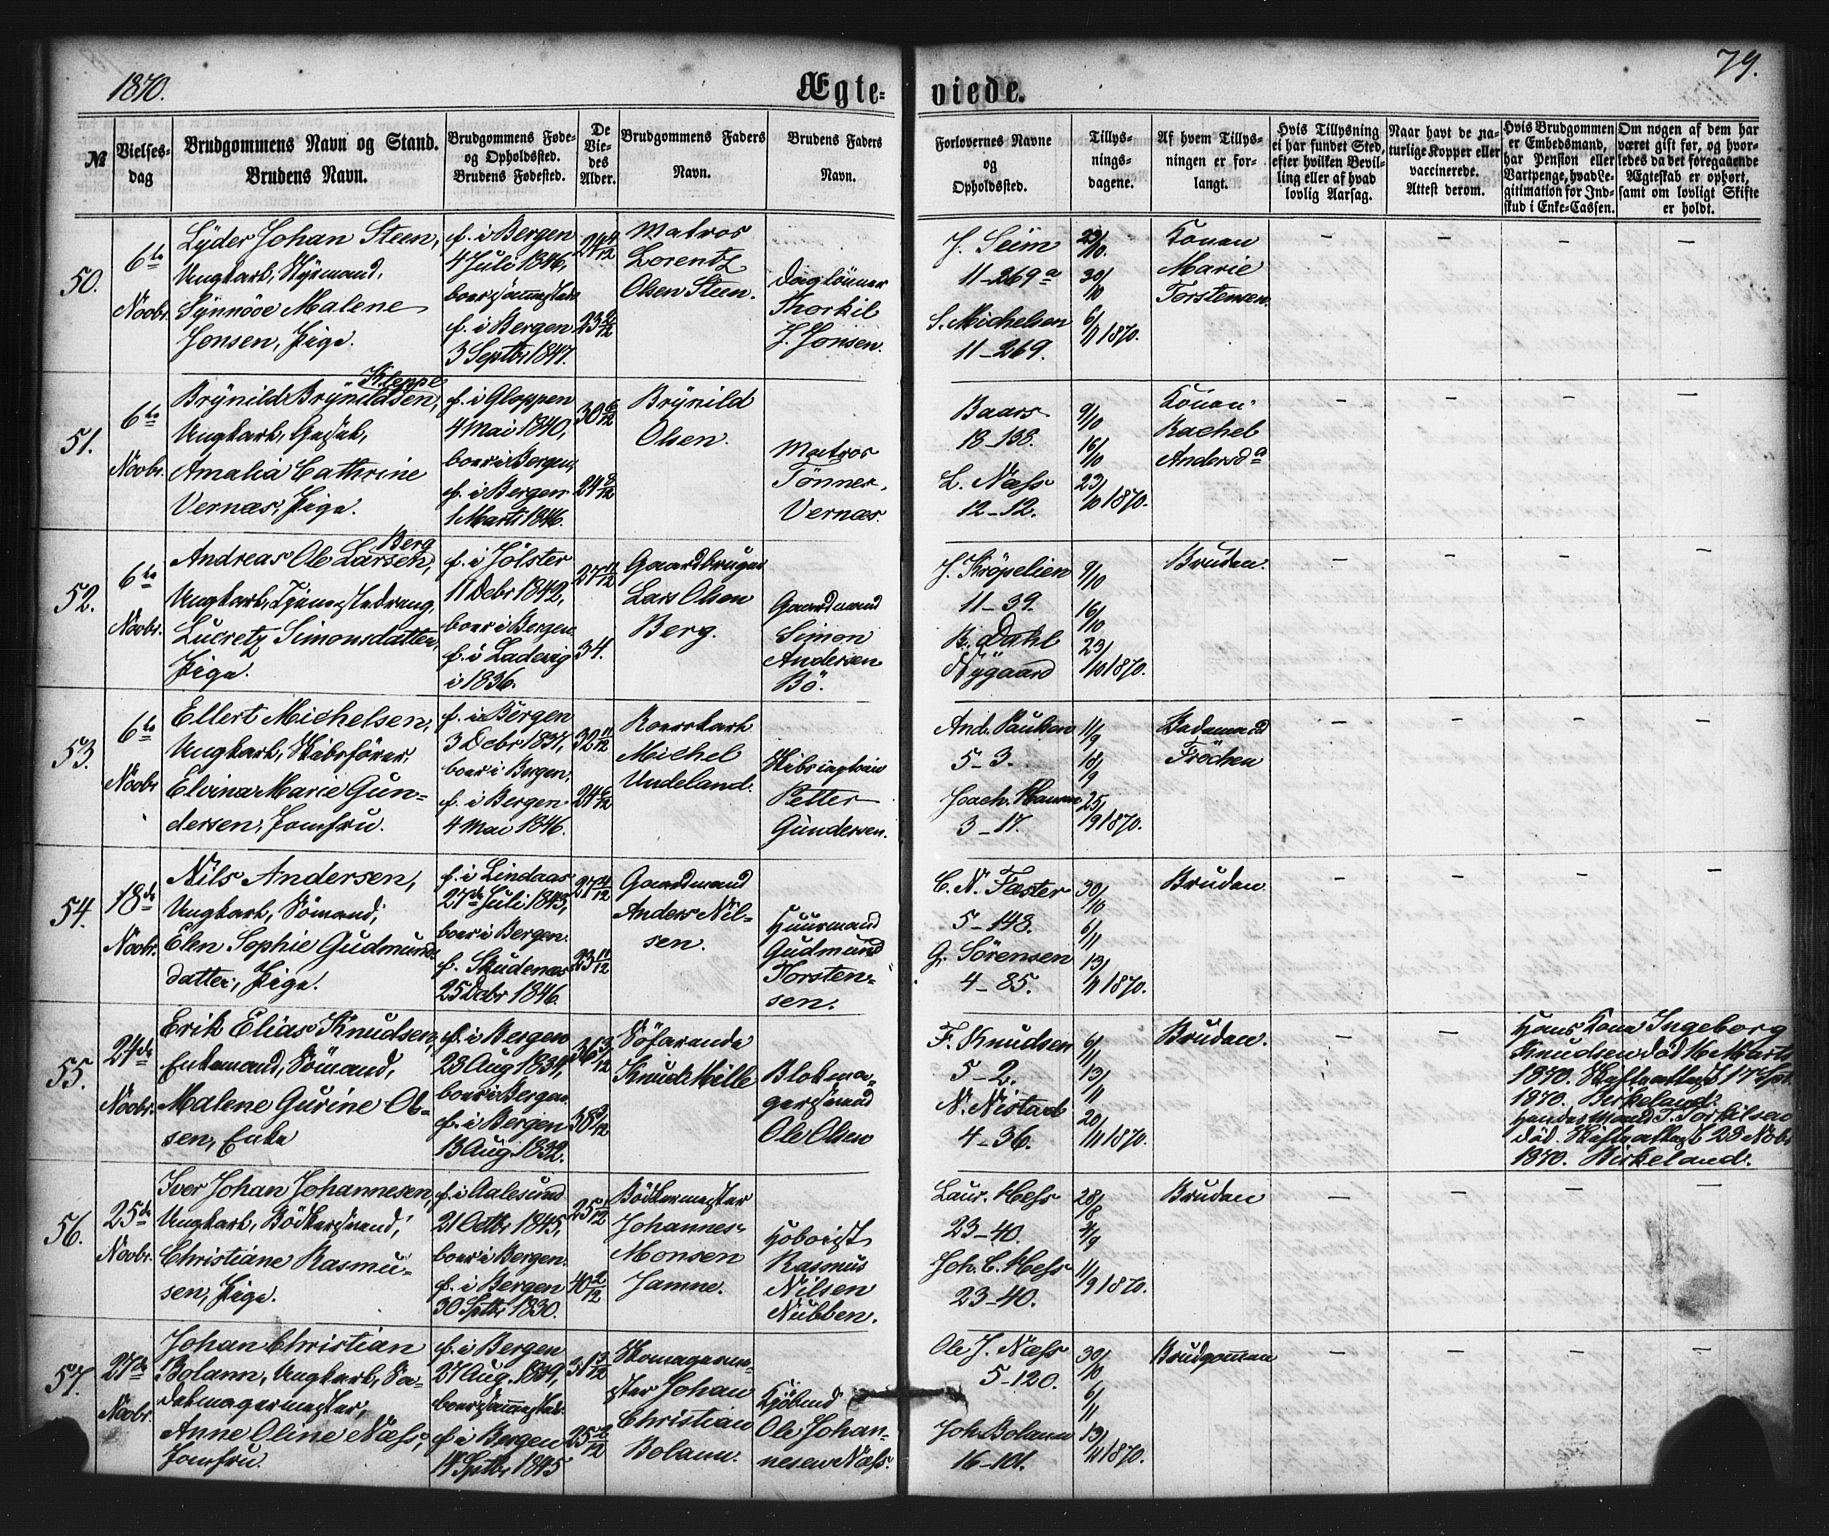 1870.
Ægte-
viede.
79.
№
Vielses-
dag
Brudgommens Navn og Stand.
Brudens Navn.
Brudgommens Føde-
og Opholdssted.
Brudens Fødested.
De
Vie-
des
Alder.
Brudgommens Faders
Navn.
Brudens Faders
Navn.
Forlovernes Navne
og
Opholdssted.
Tillys-
nings-
dagene.
Af hvem Tillys-
ningen er for-
langt.
Hvis Tillysning
ei har fundet Sted,
efter hvilken Bevil-
ling eller af hvad
lovlig Aarsag.
Naar havt de na-
turlige Kopper eller
vaccinerede.
Attest derom.
Hvis Brudgommen
er Embedsmand,
har Pension eller
Vartpenge, hvad Le-
gitimation for Ind-
skud i Enke-Cassen.
Om nogen af dem har
været gift før, og hvor-
ledes da det foregaaende
Ægteskab er ophørt,
samt om lovligt Skifte
er holdt.
50.
6te
Novbr.
Lyder Johan Steen,
Ungkarl, Styrmand,
Synnöve Malene
Jonsen, Pige.
f. i Bergen
4 Juli 1846,
boer sammesteds
f. i Bergen
3 Septbr 1847.
24 4/12
23 2/12
Matros
Lorentz
Olsen Steen.
Daglönner
Thorkil
J. Jonsen.
J. Seim
11-269 a
S. Michelsen
11-269.
23/10.
30/10
6/11 1870.
Konen
Marie
Torstensen
51.
6te
Novbr.
Kleppe
Brynild Brynildsen,
Ungkarl, Gesel,
Amalia Cathrine
Vernæs, Pige.
f. i Gloppen
4 Mai 1840,
boer i Bergen,
f. i Bergen
1 Marts 1846.
30 6/12
24 8/12
Brynild
Olsen.
Matros
Tönner
Vernæs.
Baars
18-138.
L. Næss
12-12.
9/10
16/10
23/10 1870.
Konen
Rachel
Andersda
52.
6te
Novbr.
Berg
Andreas Ole Larsen,
Ungkarl, Tjenestedreng,
Lucretz Simonsdatter,
Pige.
f. i Jölster
11 Debr 1842,
boer i Bergen.
f. i Ladevig
i 1836.
27 11/12
34.
Gaardbruger
Lars Olsen
Berg.
Gaardmand
Simon
Andersen
Bö.
J. Kröpelien
11-39.
B. Dahl
Nygaard
9/10
16/10
23/10 1870.
Bruden.
53.
6te
Novbr
Ellert Michelsen,
Ungkarl, Skibsförer,
Elvina Marie Gun-
dersen, Jomfru.
f. i Bergen
3 Debr 1837,
boer i Bergen,
f. i Bergen
4 Mai 1846.
32 11/12
24 6/12
Roerskarl
Michel
Undeland.
Skibscaptain
Petter
Gundersen.
And. Paulsen
5-3.
Joach. Hansen
3-17.
11/9
18/9
25/9 1870.
Fröchen
54.
18de
Novbr.
Nils Andersen,
Ungkarl, Sömand,
Elen Sophie Gudmunds-
datter, Pige.
f. i Lindaas
27de Juli 1843,
boer i Bergen.
f. Skudenæs
25 Debr 1846.
27 4/12
23 11/12
Gaardmand
Anders Nil-
sen.
Huusmand
Gudmund
Torsten-
sen.
C. N. Fæster
5-148.
G. Sörensen
4-85.
30/10
6/11
13/11 1870.
Bruden
55.
24de
Novbr.
Erik Elias Knudsen,
Enkemand, Sömand,
Malene Gurine Ol-
sen, Enke
f. i Bergen
23 Aug 1834,
boer i Bergen
f. i Bergen
13 Aug. 1832.
36 3/12
38 3/12
Söfarende
Knud Mille
Blokma-
gersvend
Ole Olsen
F. Knudsen
5-2.
N. Nistad
4-36.
6/11
13/11
20/11 1870.
Bruden.
Hans Kone Ingeborg
Knudsen död 16 Marts
1870. Skifteattest 17 Spt.
1870. Birkeland.
Hendes Mand T. Torkilsen
död. Skifteattest 23 Novbr
1870. Birkeland.
56.
25de
Novbr.
Iver Johan Johannesen,
Ungkarl, Bödkersvend,
Christiane Rasmu-
sen, Pige.
f. i Aalesund
21 Octbr 1845,
boer i Bergen.
f. i Bergen
30 Sptbr 1830.
25 1/12
40 2/12
Bödkermester
Johannes
Monsen
Jamne.
Hoboist
Rasmus
Nilsen
Nubben.
Laur. Hess
23-40.
Joh. C. Hess
23-40.
28/8
4/9
11/9 1870.
Bruden
57.
27de
Novbr.
Johan Christian
Bolann, Ungkarl, Sa-
delmagermester,
Anne Oline Næss,
Jomfru.
f. i Bergen
27 Aug. 1839,
boer sammesteds.
f. i Bergen
14 Sptbr 1845
31 3/12
25 2/12
Skomagerme-
ster Johan
Christian
Bolann.
Kjöbmd
Ole Johan-
nesen Næss.
Ole J. Næss
5-120.
Joh. Bolann
16-101.
30/10
6/11
13/11 1870.
Brudgommen